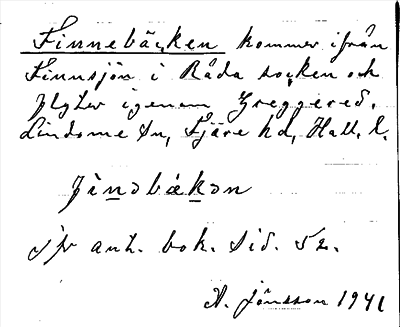 Finnebäcken kommer ifrån
Finnsjön i Råda socken och
flyter igenom Greggered.
Lindome sn, Fjäre hd, Hall. l.
fìnəbǽkən
jfr ant. bok. sid. 52.
A. Jönsson 1941